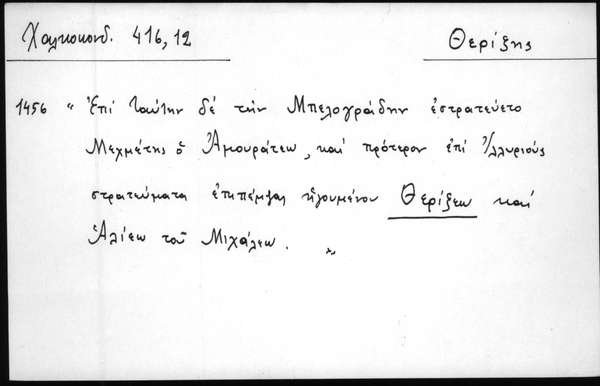 Χαλκοκονδ. 416,12 Θερίξης
1456 " Ἐπὶ ταύτην δὲ τὴν Μπελογράδην ἐστρατεύετο
Μεχμέτης ὁ Ἀμουράτεω, καὶ πρότερον ἐπὶ Ἰλλυριοὺς
στρατεύματα ἐπιπέμψας ἡγουμένου Θερίξεω καὶ
Ἀλίεω τοῦ Μιχάλεω. "